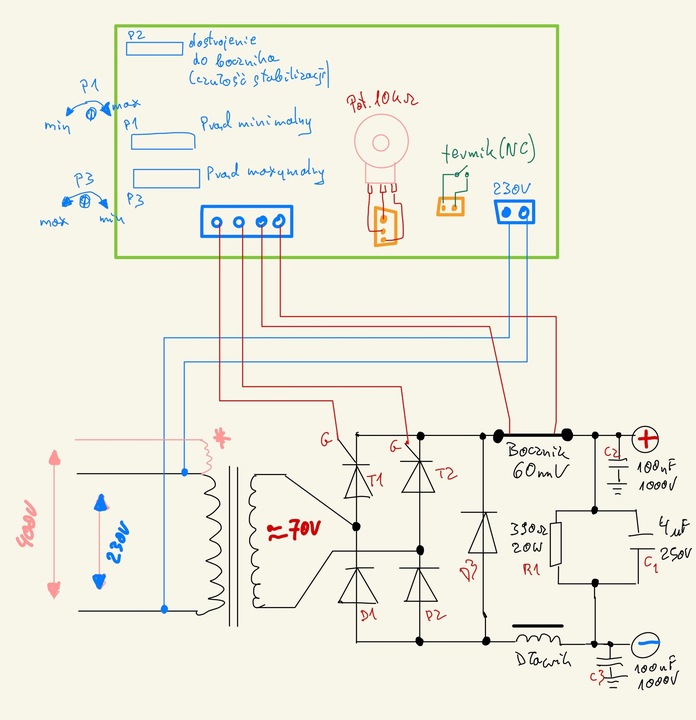 P2
dostrojenie
do bocznika
(czułość stabilizacji)
P1
min
max
P1
Prąd minimalny
P3
max
min
P3
Prąd maxymalny
Pot. 10kΩ
termik (NC)
230V
400V
230V
*
≈70V
G
T1
G
T2
D1
D2
D3
Bocznik
60mV
+
C2
100nF
1000V
390Ω
20W
R1
4µF
250V
C1
Dławik
−
C3
100nF
1000V